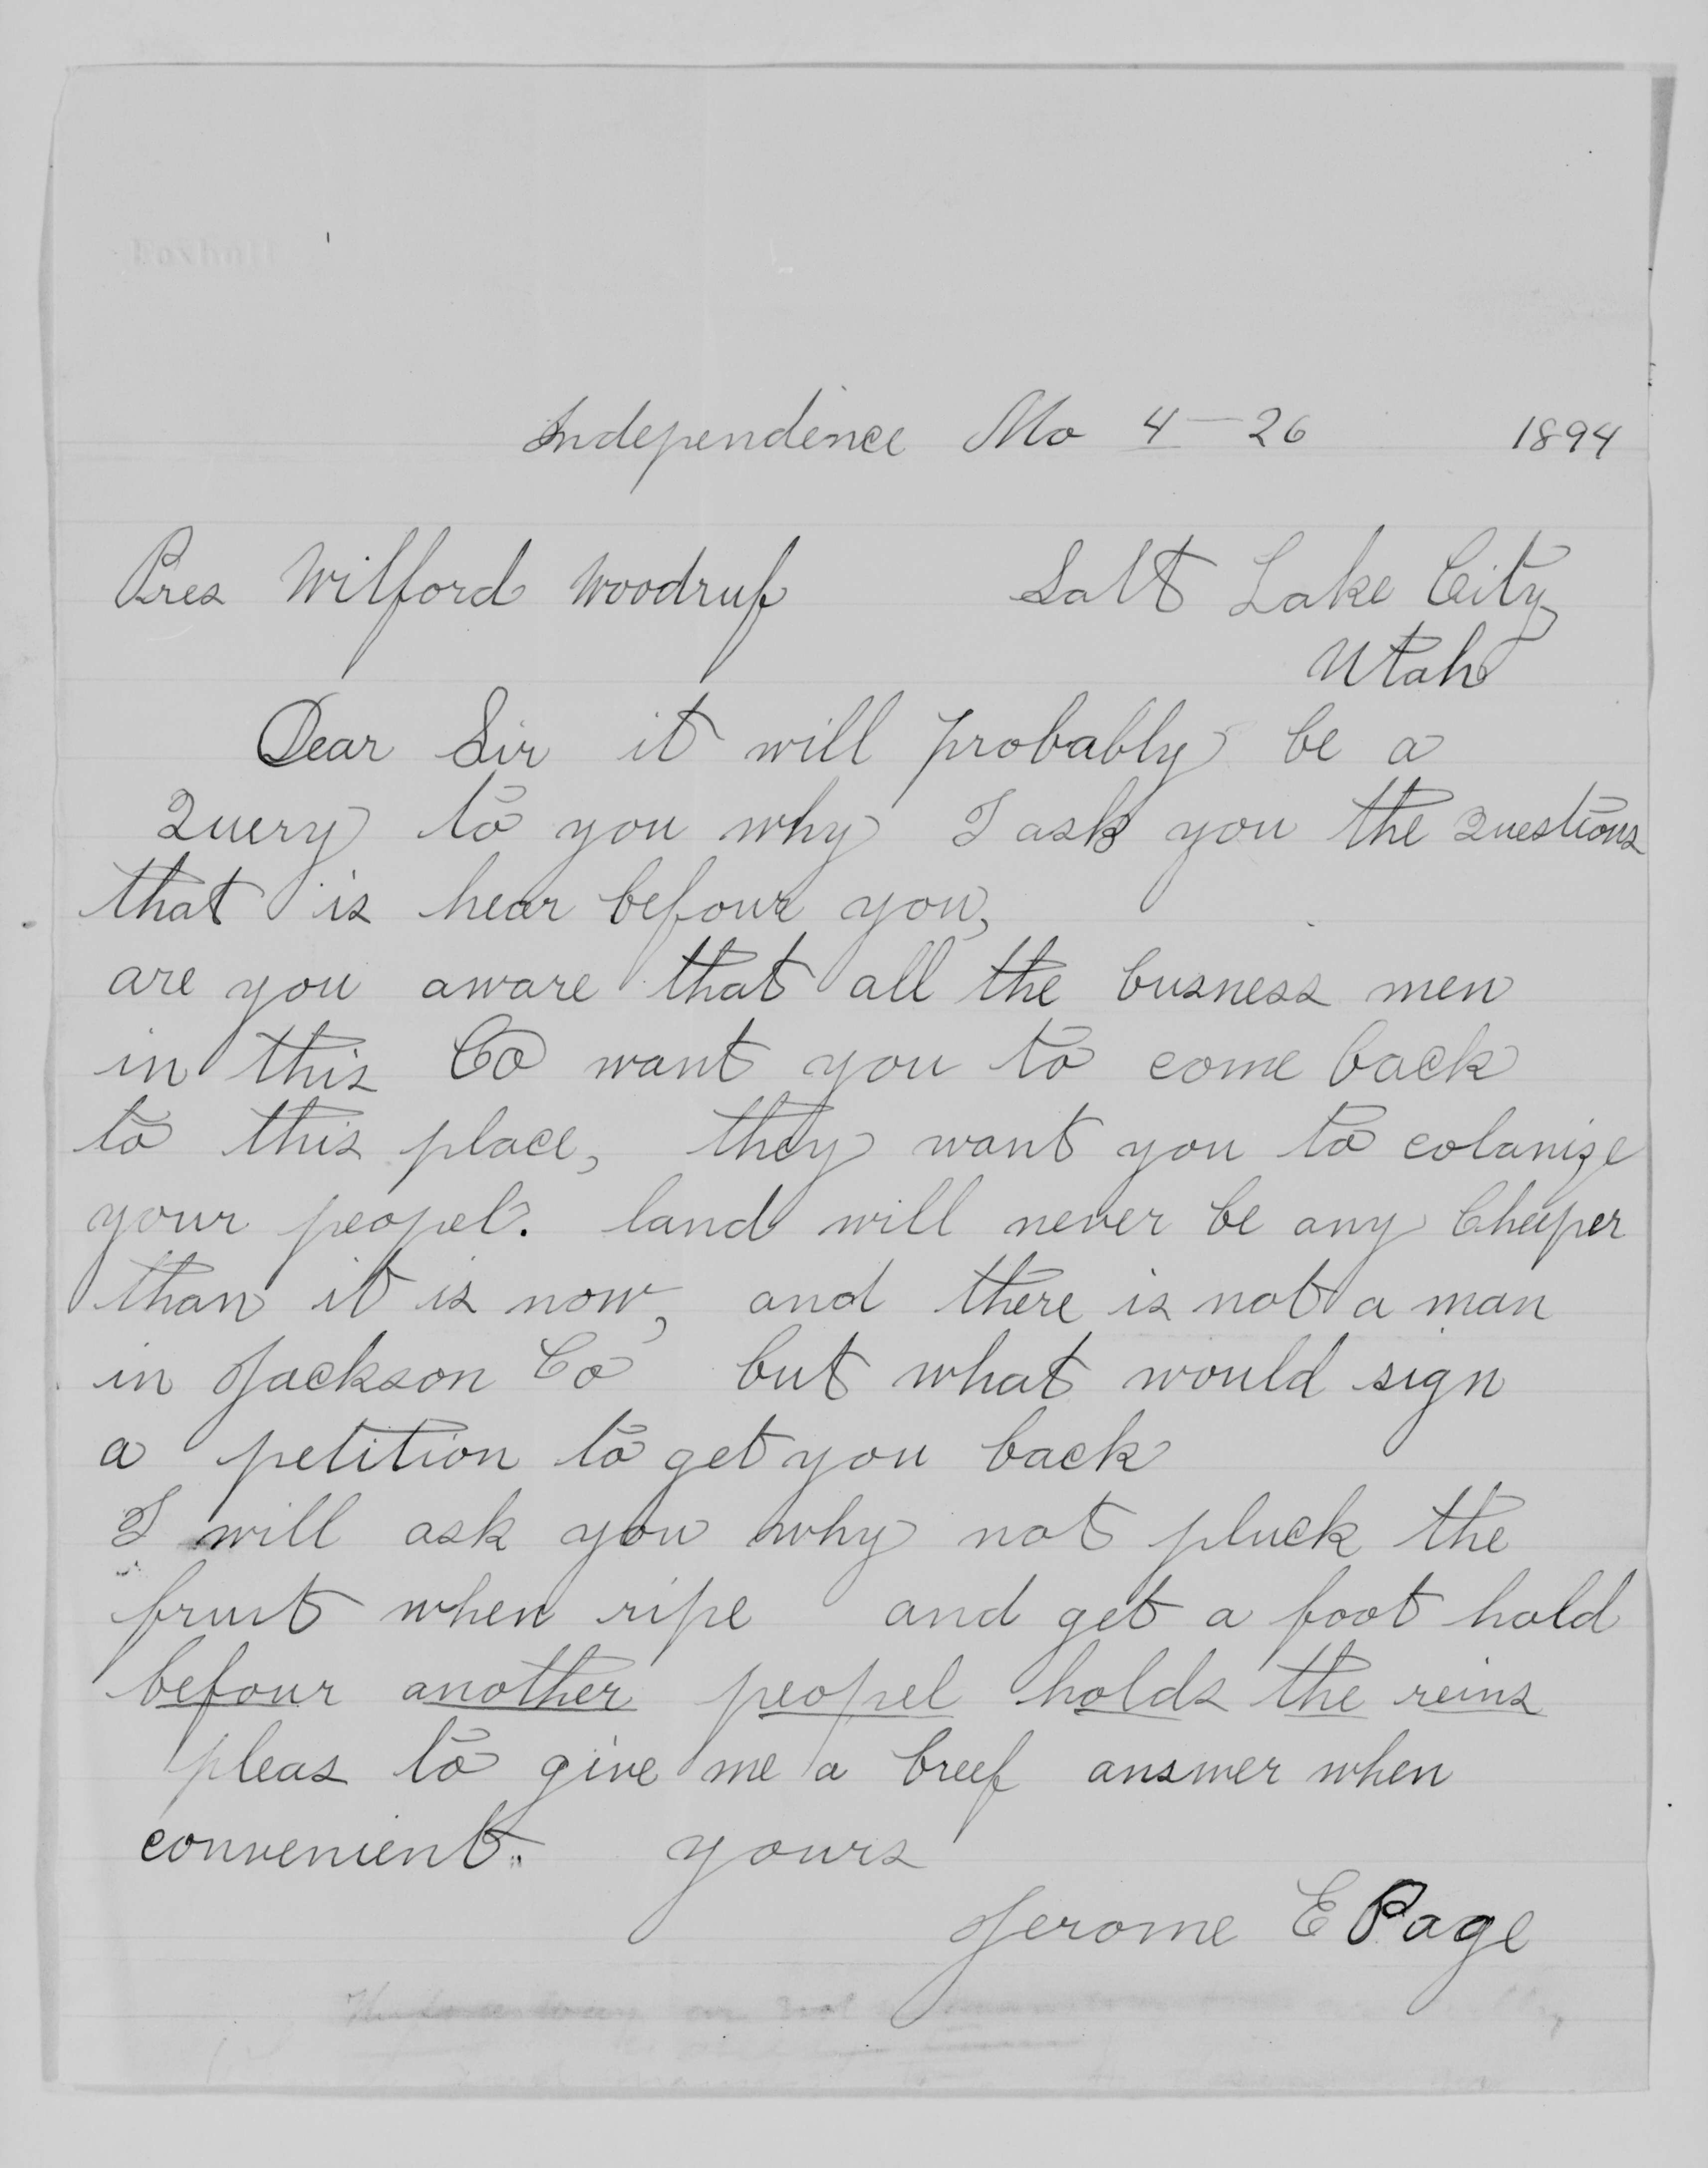 Independence Mo 4-26 1894
Pres Wilford Woodruf Salt Lake City
Utah
Dear Sir it will probably be a
Query to you why I ask you the Questions
that is hear befour you,
are you aware that all the busness men
in this Co want you to come back
to this place, they want you to colanize
your peopel. land will never be any Cheeper
than it is now, and there is not a man
in Jackson Co but what would sign
a petition to get you back
I will ask you why not pluck the
fruit when ripe and get a foot hold
befour another peopel holds the reins
pleas to give me a breef answer when
convenient. yours
Jerome E Page